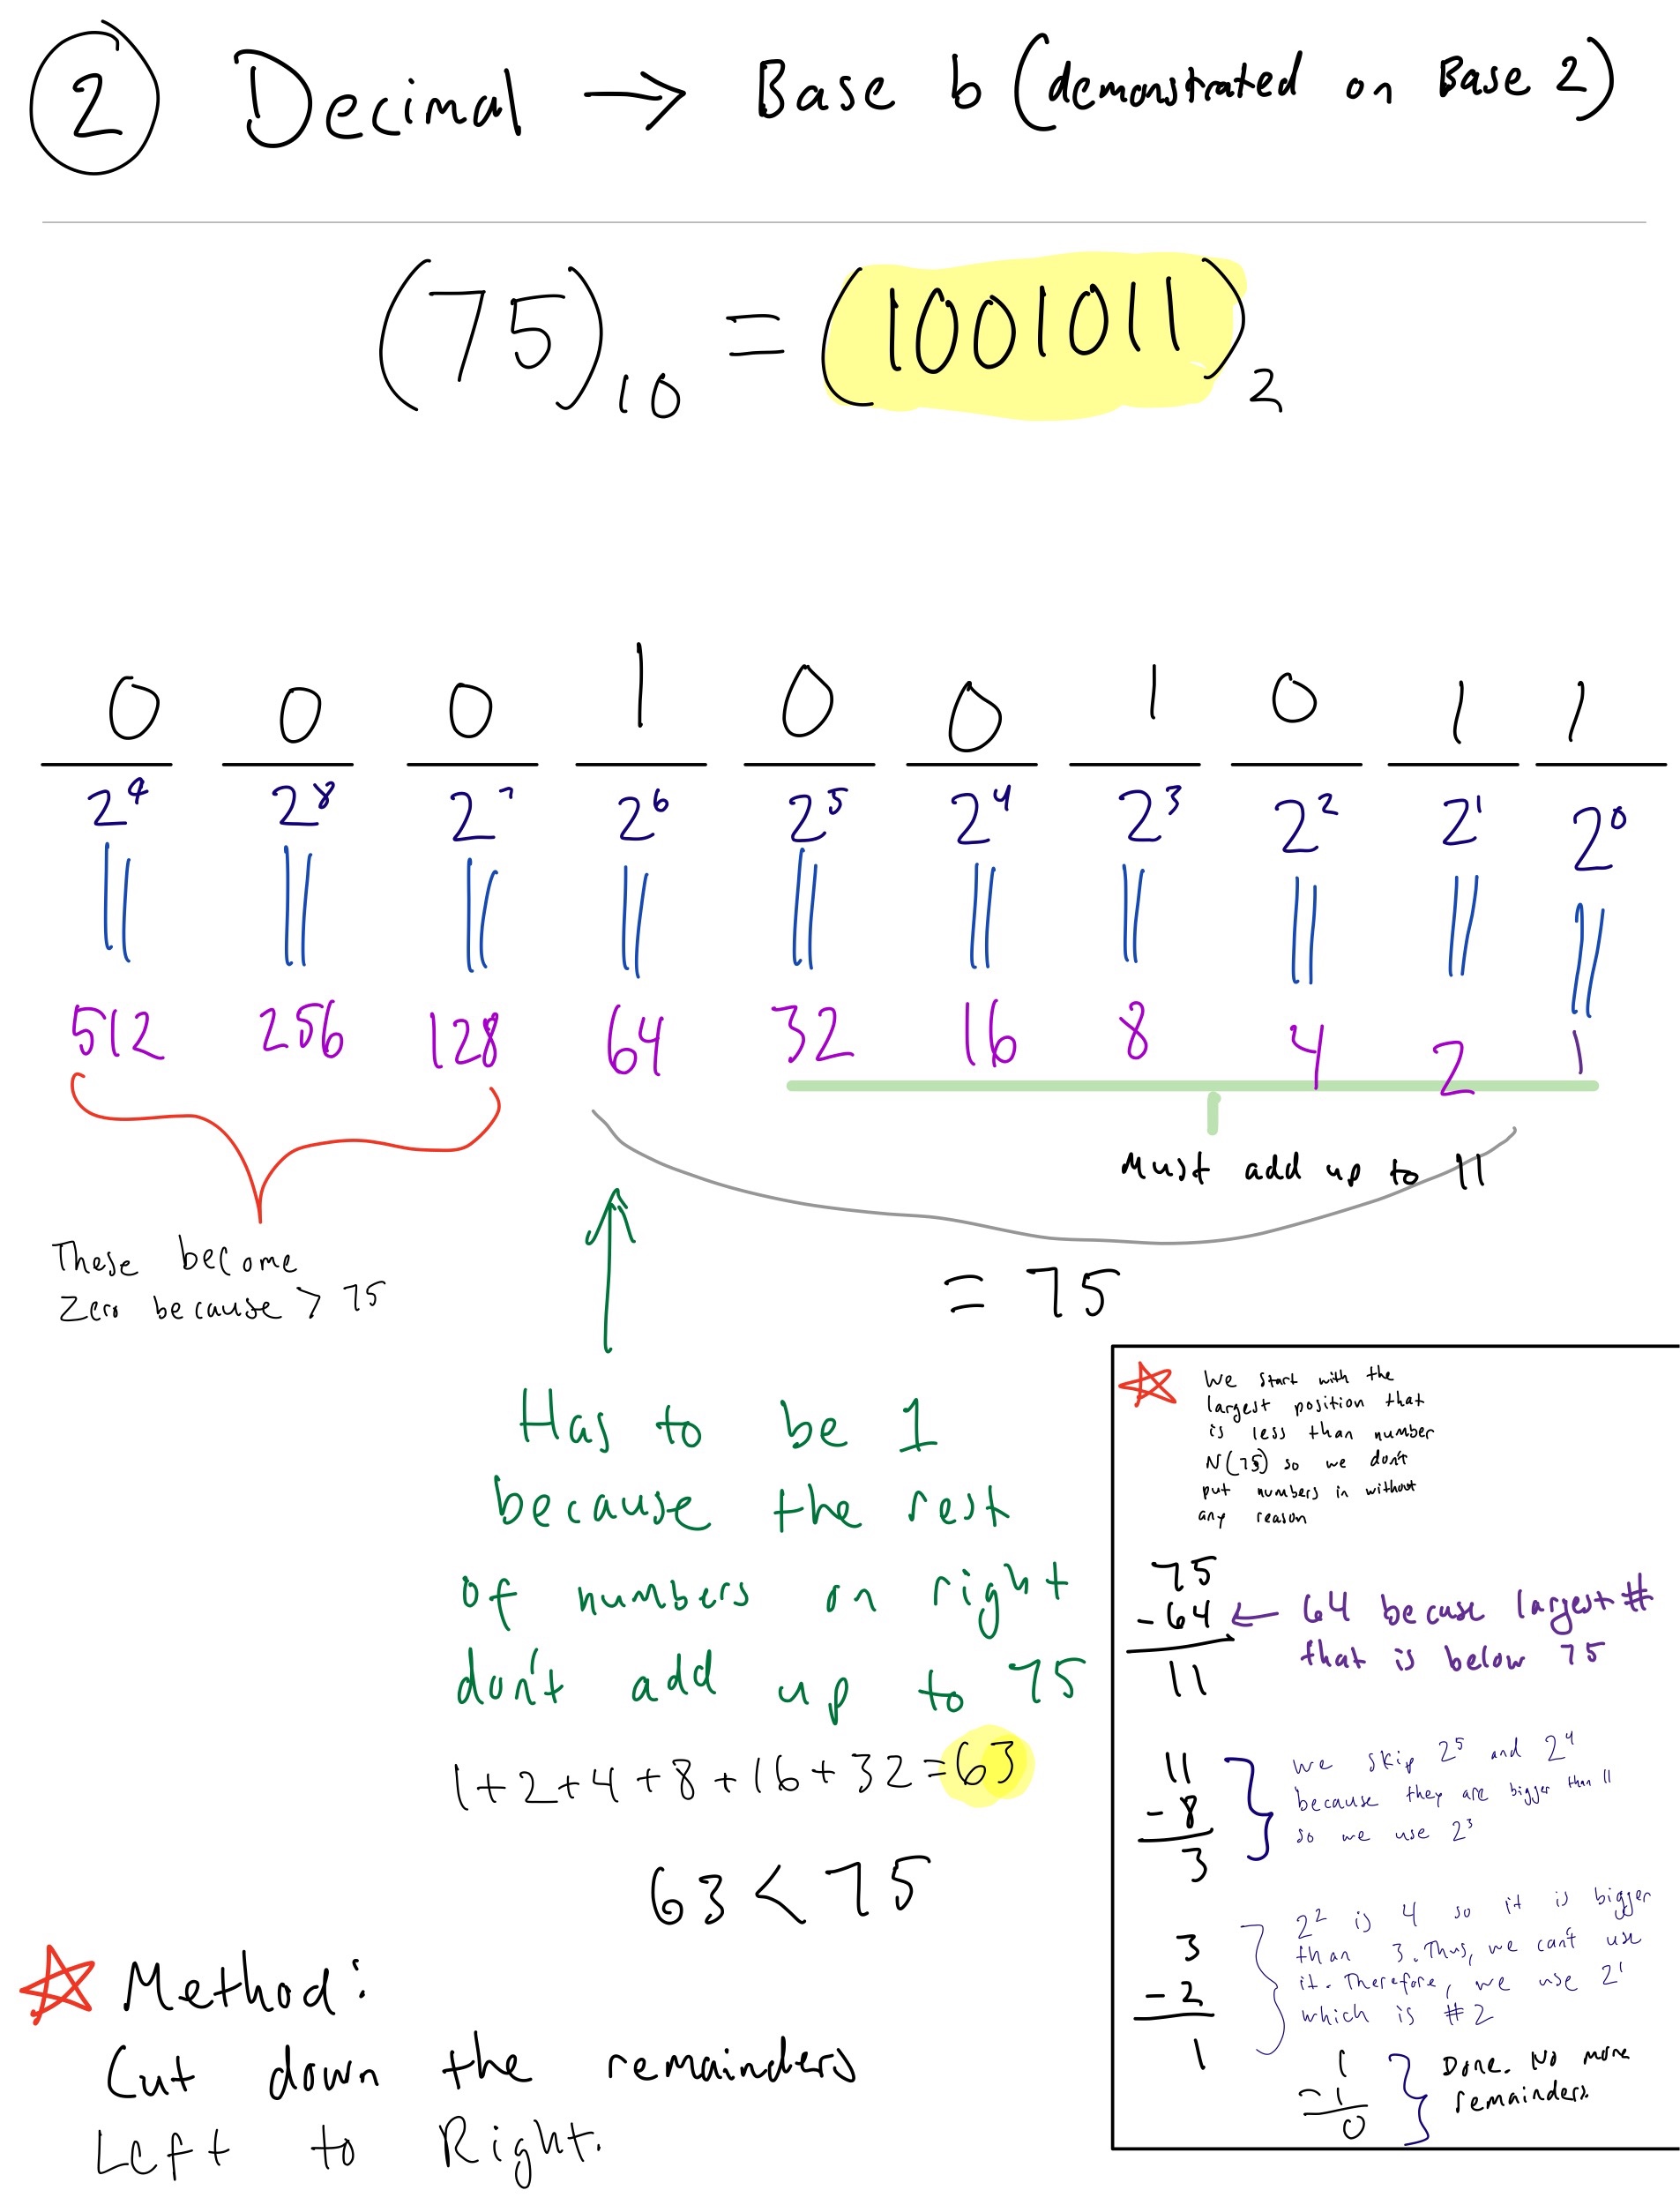 2 Decimal → Base b (demonstrated on Base 2)
(75)10 = (1001011)2
0 0 0 1 0 0 1 0 1 1
2⁹ 2⁸ 2⁷ 2⁶ 2⁵ 2⁴ 2³ 2² 2¹ 2⁰
512 256 128 64 32 16 8 4 2 1
Must add up to 11
These become
Zero because > 75
= 75
Has to be 1
because the rest
of numbers on right
don't add up to 75
1+2+4+8+16+32=63
63 < 75
☆ Method:
Cut down the remainders
Left to Right.
☆ We start with the
largest position that
is less than number
N(75) so we don't
put numbers in without
any reason
75
-64 ← 64 becuse largest #
that is below 75
11
11
-8
3
We skip 2⁵ and 2⁴
because they are bigger than 11
so we use 2³
3
-2
1
2² is 4 so it is bigger
than 3. Thus, we can't use
it. Therefore, we use 2¹
which is #2
1
-1
0
Done. No more
remainders.